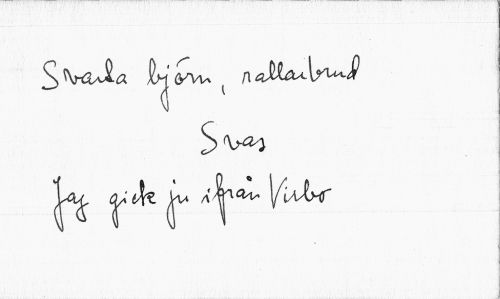 Svarta björn, rallarbrud
Svar
Jag gick ju ifrån Virbo